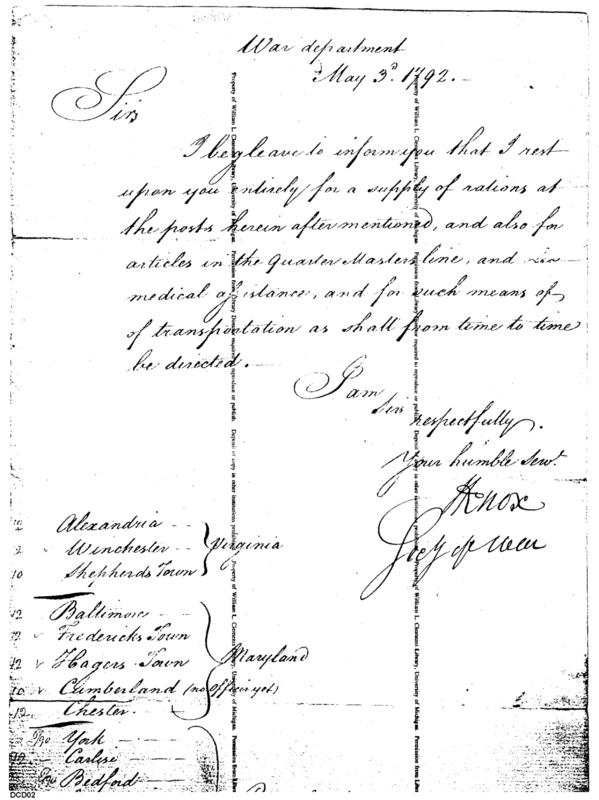 War department
May 3d. 1792.-
Sir
I beg leave to inform you that I rest
upon you entirely for a supply of rations at
the posts herein after mentioned, and also for
articles in the Quarter Masters line, and
medical assistance, and for such means of
of transportation as shall from time to time
be directed.-
I am
Sir
respectfully.
Your humble Servt.
HKnox
Secy of war
12 Alexandria - -
Winchester - -
10 Shepherds Town
Virginia
12 Baltimore
12 v Fredericks Town
12 v Hagers Town
10 v Cumberland (no officer yet)
12 Chester.
Maryland
York
Carlise
Bedford
Property of William L. Clements Library, University of Michigan. Permission from Library Director required to reproduce or publish. Deposit of copy in other institutions prohibited.
Property of William L. Clements Library, University of Michigan. Permission from Library Director required to reproduce or publish. Deposit of copy in other institutions prohibited.
DCD02